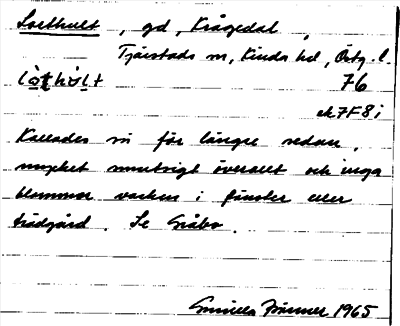 Lorthult, gd, Krågedal,
Tjärstads sn, Kinda hd, Östg. l.
76
ek 7F8i
Kallades så för längre sedan,
mycket smutsigt överallt och inga
blommor varken i fönster eller
trädgård. Se Gråbo.
Gunilla 1965